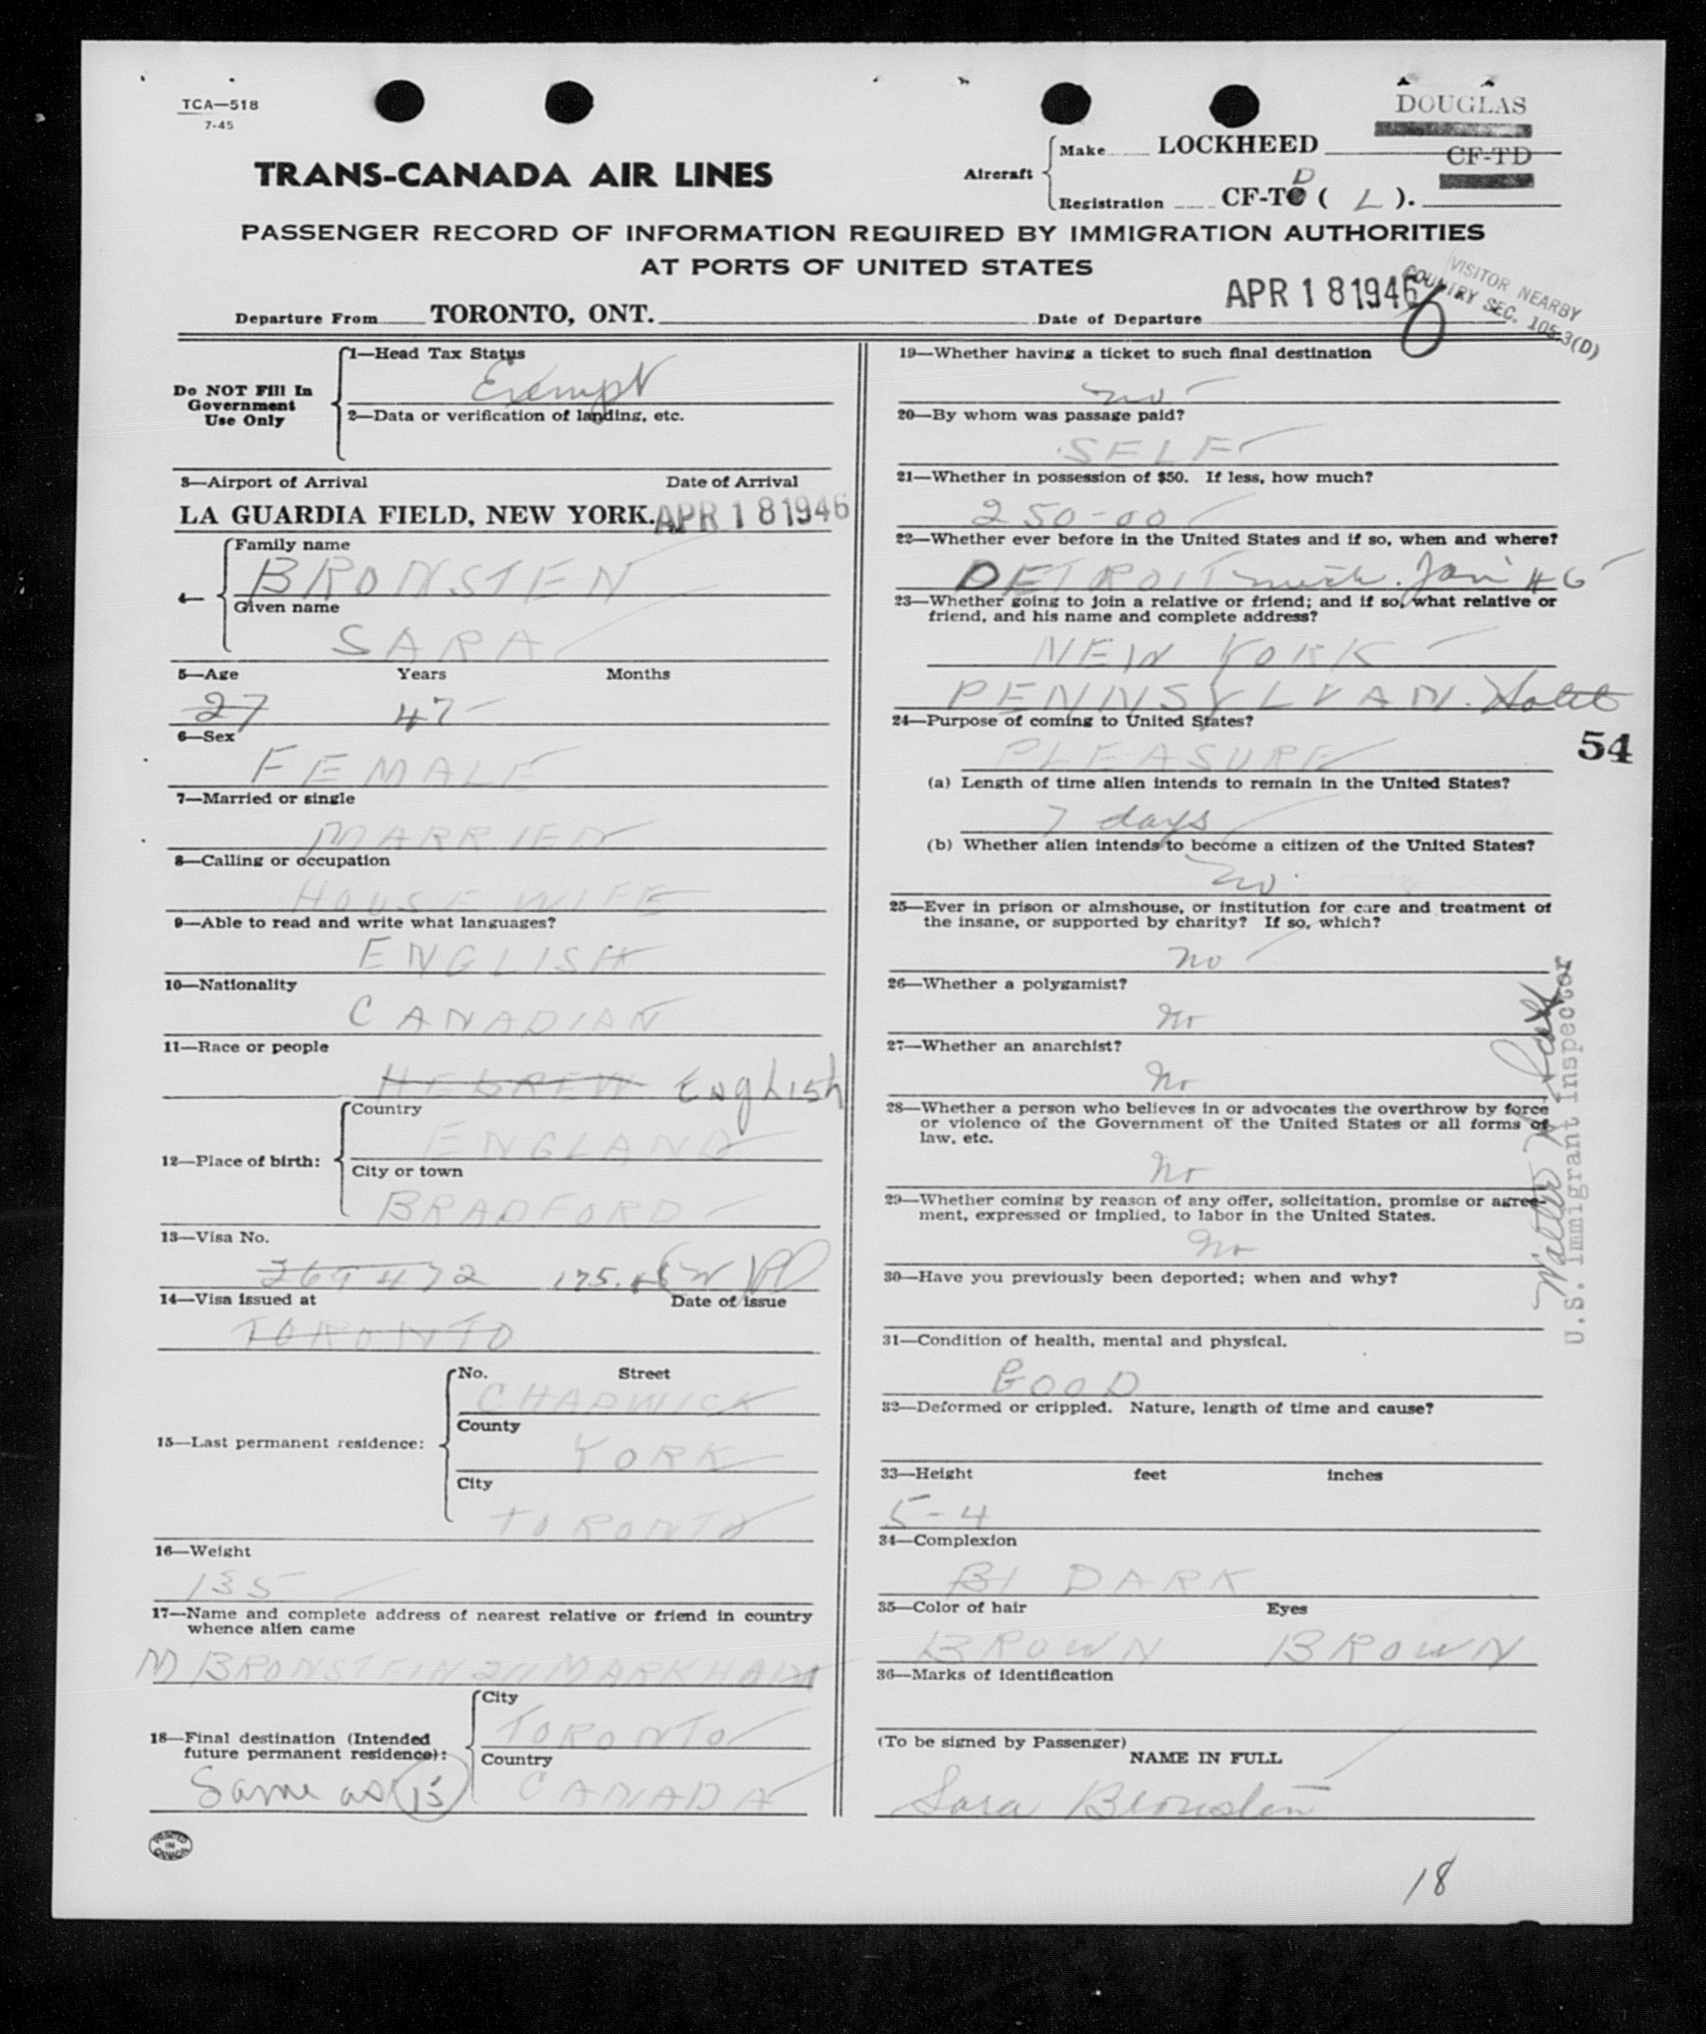 TCA—518
7-45
DOUGLAS
Aircraft
Make LOCKHEED
CF-TD
Registration CF-TD ( L ).
TRANS-CANADA AIR LINES
PASSENGER RECORD OF INFORMATION REQUIRED BY IMMIGRATION AUTHORITIES
AT PORTS OF UNITED STATES
VISITOR NEARBY
COUNTRY SEC. 105.3(D)
Departure From TORONTO, ONT.
Date of Departure APR 18 1946
6
Do NOT Fill In
Government
Use Only
1—Head Tax Status
Exempt
2—Data or verification of landing, etc.
3—Airport of Arrival Date of Arrival
LA GUARDIA FIELD, NEW YORK. APR 18 1946
4—
Family name
BRONSTEN
Given name
SARA
5—Age Years Months
27 47
6—Sex
FEMALE
7—Married or single
MARRIED
8—Calling or occupation
HOUSE WIFE
9—Able to read and write what languages?
ENGLISH
10—Nationality
CANADIAN
11—Race or people
HEBREW English
12—Place of birth:
Country
ENGLAND
City or town
BRADFORD
13—Visa No.
269472 175.
14—Visa issued at Date of issue
TORONTO
15—Last permanent residence:
No. Street
CHADWICK
County
YORK
City
TORONTO
16—Weight
135
17—Name and complete address of nearest relative or friend in country
whence alien came
M BRONSTEIN MARKHAM
18—Final destination (Intended
future permanent residence):
Same as 15
City
TORONTO
Country
CANADA
PRINTED
IN
CANADA
19—Whether having a ticket to such final destination
no
20—By whom was passage paid?
SELF
21—Whether in possession of $50. If less, how much?
250-00
22—Whether ever before in the United States and if so, when and where?
DETROIT mich. Jan 46
23—Whether going to join a relative or friend; and if so, what relative or
friend, and his name and complete address?
NEW YORK
PENNSYLVAN. Hotel
24—Purpose of coming to United States?
PLEASURE
54
(a) Length of time alien intends to remain in the United States?
7 days
(b) Whether alien intends to become a citizen of the United States?
no
25—Ever in prison or almshouse, or institution for care and treatment of
the insane, or supported by charity? If so, which?
no
26—Whether a polygamist?
No
27—Whether an anarchist?
No
28—Whether a person who believes in or advocates the overthrow by force
or violence of the Government of the United States or all forms of
law, etc.
No
29—Whether coming by reason of any offer, solicitation, promise or agree-
ment, expressed or implied, to labor in the United States.
No
30—Have you previously been deported; when and why?
31—Condition of health, mental and physical.
GOOD
32—Deformed or crippled. Nature, length of time and cause?
33—Height feet inches
5-4
34—Complexion
DARK
35—Color of hair Eyes
BROWN BROWN
36—Marks of identification
(To be signed by Passenger)
NAME IN FULL
Sara Bronsten
U.S. Immigrant Inspector
18